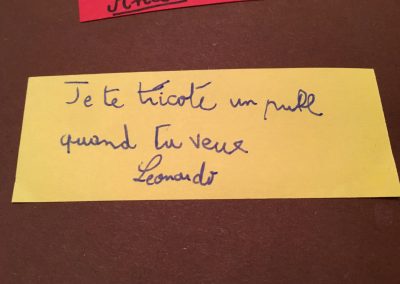 Je te tricote un pull
quand tu veux
Leonardo